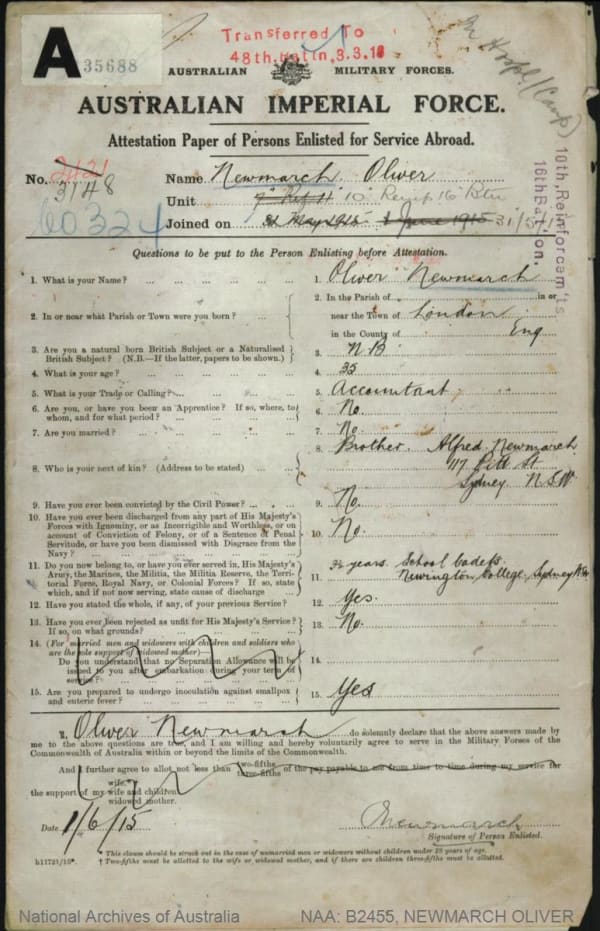 Transferred To
48th Battn, 3.3.16
In Hospl (Camp)
A 35688
AUSTRALIAN MILITARY FORCES.
AUSTRALIAN IMPERIAL FORCE.
Attestation Paper of Persons Enlisted for Service Abroad.
No. 3148
Name Newmarch Oliver
60324
Unit 10 16 Btn
Joined on 31/5/15
10th. Reinforcem'ts
16th Battalion.
Questions to be put to the Person Enlisting before Attestation.
1. What is your Name? 1. Oliver Newmarch
2. In or near what Parish or Town were you born? 2. In the Parish of in or
near the Town of London
in the County of Eng
3. Are you a natural born British Subject or a Naturalised
British Subject? (N.B.—If the latter, papers to be shown.) 3. N B
4. What is your age? 4. 35
5. What is your Trade or Calling? 5. Accountant
6. Are you, or have you been an Apprentice? If so, where, to
whom, and for what period? 6. No
7. Are you married? 7. No
8. Who is your next of kin? (Address to be stated) 8. Brother. Alfred Newmarch
117 Pitt St
Sydney N.S.W
9. Have you ever been convicted by the Civil Power? 9. No
10. Have you ever been discharged from any part of His Majesty's
Forces with Ignominy, or as Incorrigible and Worthless, or on
account of Conviction of Felony, or of a Sentence of Penal
Servitude, or have you been dismissed with Disgrace from the
Navy? 10. No.
11. Do you now belong to, or have you ever served in, His Majesty's
Army, the Marines, the Militia, the Militia Reserve, the Terri-
torial Force, Royal Navy, or Colonial Forces? If so, state
which, and if not now serving, state cause of discharge 11. years. School Cadets.
Newington College, Sydney
12. Have you stated the whole, if any, of your previous Service? 12. Yes.
13. Have you ever been rejected as unfit for His Majesty's Service?
If so, on what grounds? 13. No.
14. (For married men and widowers with children and soldiers who
are the sole support of widowed mother)—
Do you understand that no Separation Allowance will be
issued to you after embarkation during your term of
service? 14.
15. Are you prepared to undergo inoculation against smallpox
and enteric fever? 15. Yes
I, Oliver Newmarch do solemnly declare that the above answers made by
me to the above questions are true, and I am willing and hereby voluntarily agree to serve in the Military Forces of the
Commonwealth of Australia within or beyond the limits of the Commonwealth.
And I further agree to allot not less than two-fifths three-fifths of the pay payable to me from time to time during my service for
the support of my wife wife and children widowed mother.
Date 1/6/15
Newmarch
Signature of Person Enlisted.
* This clause should be struck out in the case of unmarried men or widowers without children under 18 years of age.
† Two-fifths must be allotted to the wife or widowed mother, and if there are children three-fifths must be allotted.
National Archives of Australia NAA: B2455, NEWMARCH OLIVER